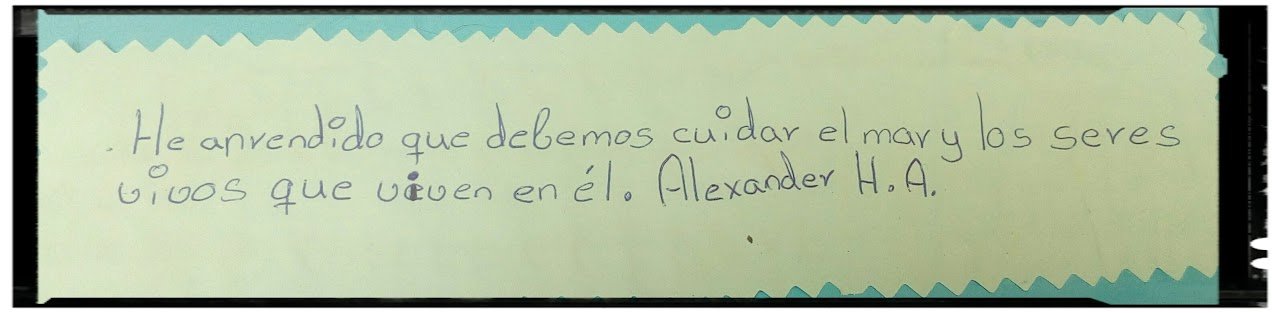 He anrendido que debemos cuidar el mar y los seres
vivos que viven en él. Alexander H.A.